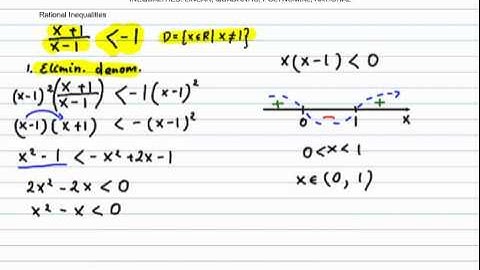 INEQUALITIES: LINEAR, QUADRATIC, POLYNOMIAL, RATIONAL
Rational Inequalities
x+1/x-1 < -1 D={x∈R | x≠1}
1. Elimin. denom.
(x-1)²(x+1/x-1) < -1(x-1)²
(x-1)(x+1) < -(x-1)²
x²-1 < -x²+2x-1
2x²-2x < 0
x²-x < 0
x(x-1) < 0
+ - +
0 1 x
0<x<1
x∈(0, 1)